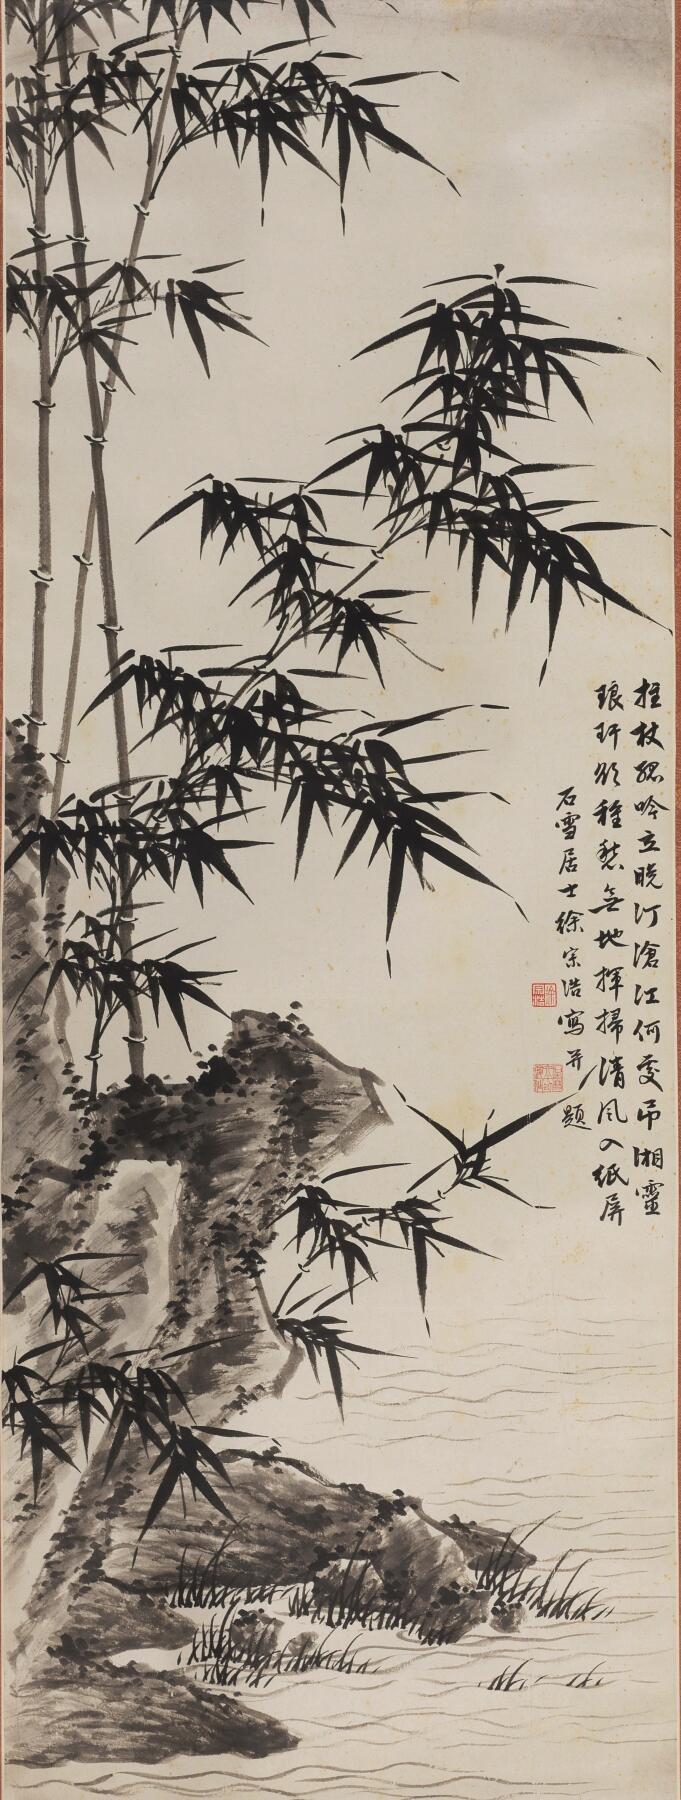 拄杖孤吟立晚汀滄江何處弔湘靈
琅玕欲種愁無地揮掃清風入紙屏
石雪居士徐宗浩寫并題